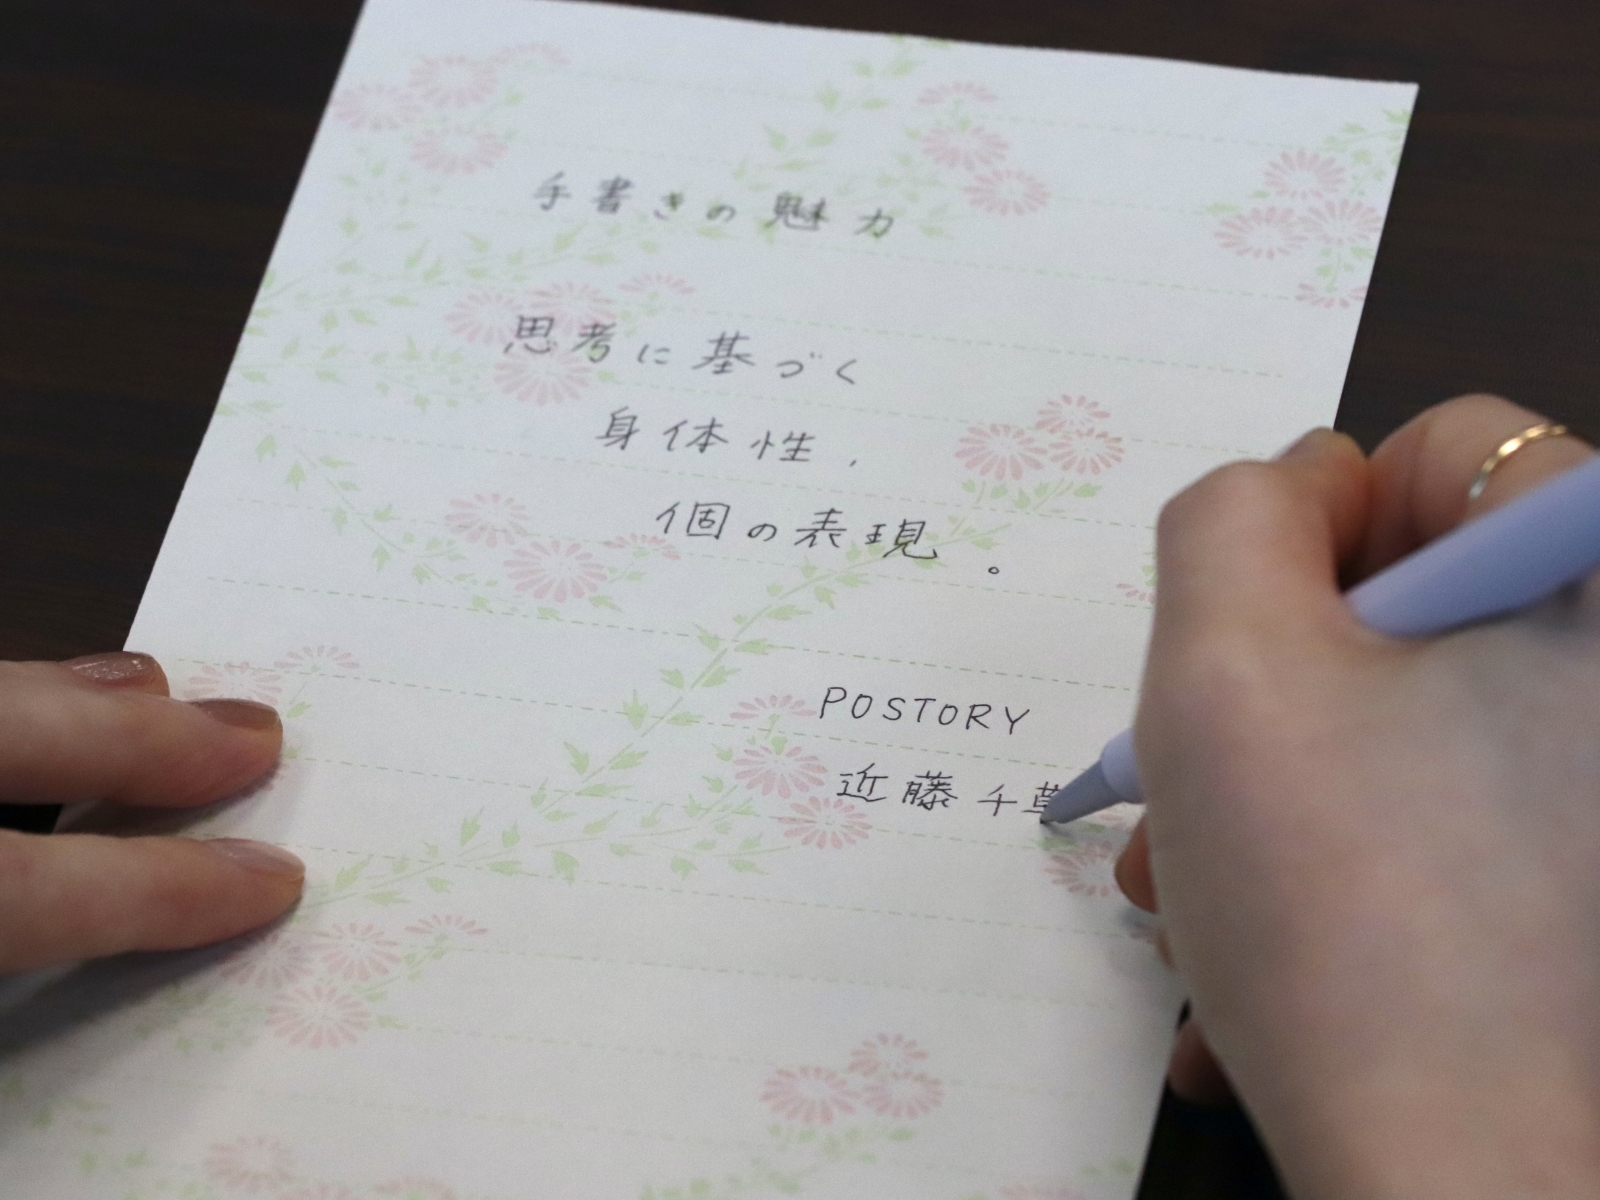 手書きの魅力
思考に基づく
身体性、
個の表現。
POSTORY
近藤千草